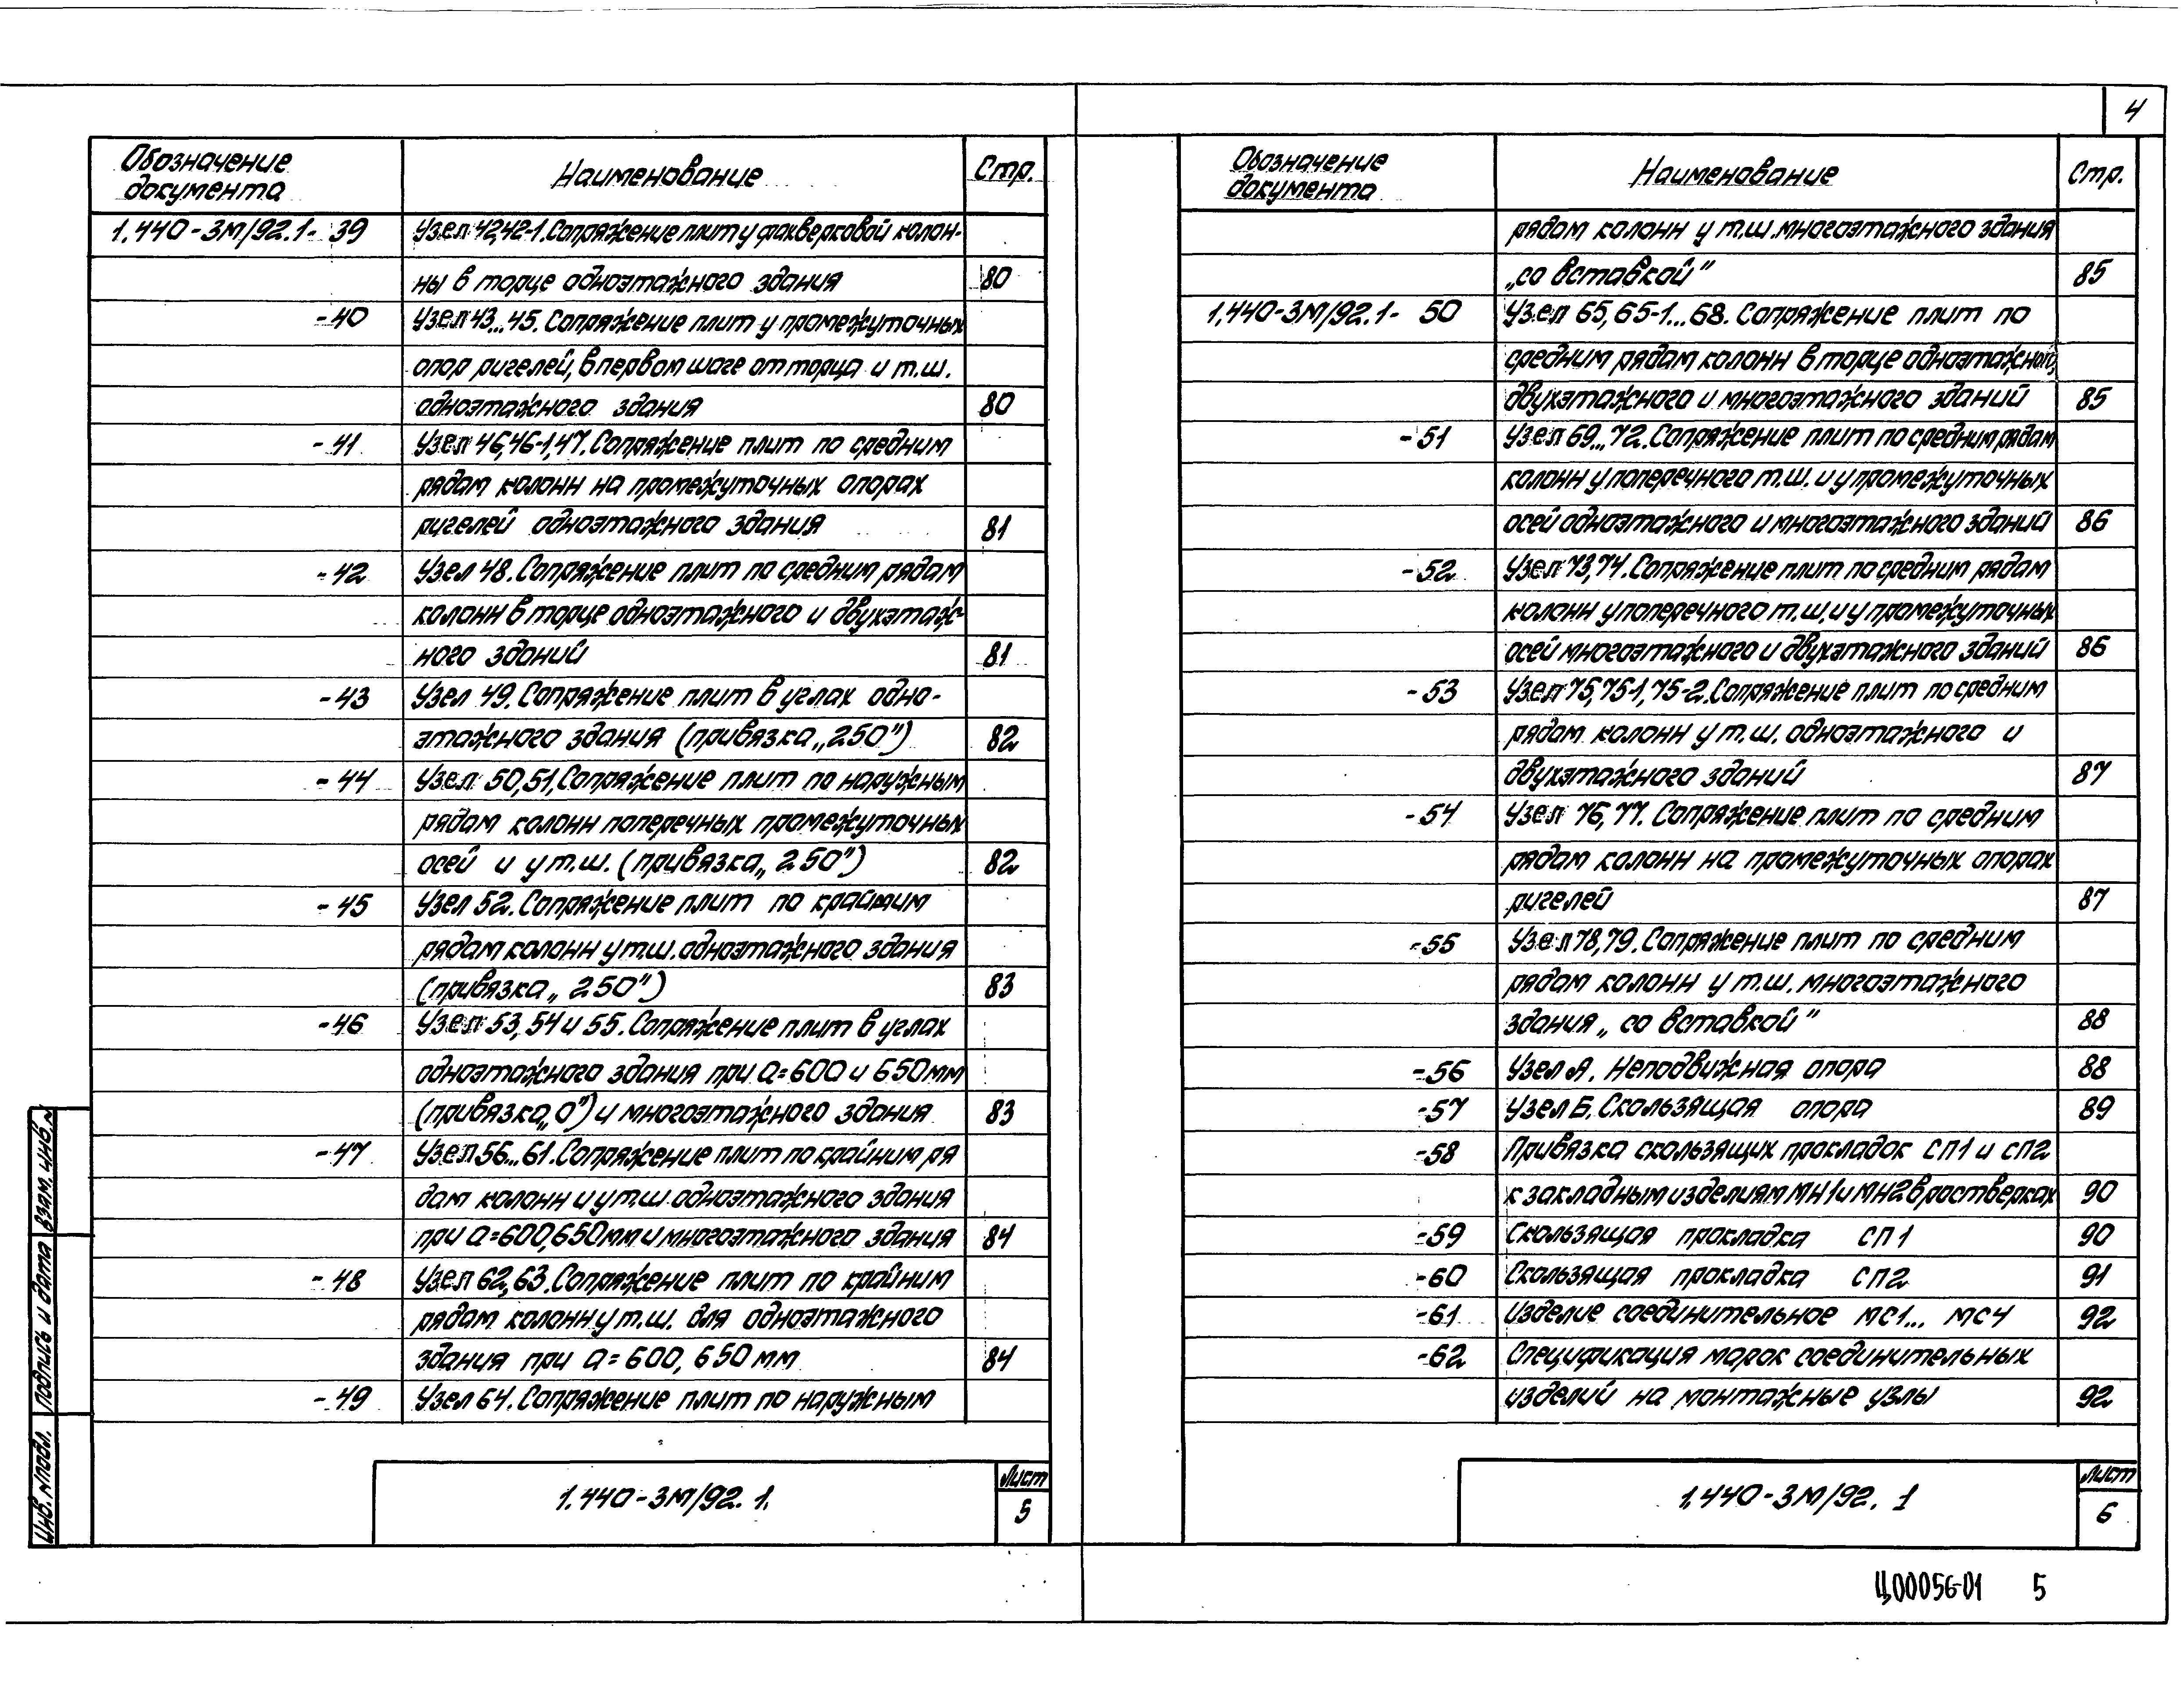 4
Обозначение документа Наименование Стр.
1.440-3М/92.1- 39 Узел 42,42-1. Сопряжение плит у фахверковой колон-
ны в торце одноэтажного здания 80
-40 Узел 43...45. Сопряжение плит у промежуточных
опор ригелей, в первом шаге от торца и т.ш.
одноэтажного здания 80
-41 Узел 46,46-1,47. Сопряжение плит по средним
рядам колонн на промежуточных опорах
ригелей одноэтажного здания 81
-42 Узел 48. Сопряжение плит по средним рядам
колонн в торце одноэтажного и двухэтаж-
ного зданий 81
-43 Узел 49. Сопряжение плит в углах одно-
этажного здания (привязка „250") 82
-44 Узел 50,51. Сопряжение плит по наружным
рядам колонн поперечных промежуточных
осей и у т.ш. (привязка „250") 82
-45 Узел 52. Сопряжение плит по крайним
рядам колонн у т.ш. одноэтажного здания
(привязка „250") 83
-46 Узел 53,54 и 55. Сопряжение плит в углах
одноэтажного здания при а=600 и 650мм
(привязка „0") и многоэтажного здания 83
-47 Узел 56...61. Сопряжение плит по крайним ря
дам колонн и у т.ш. одноэтажного здания
при а=600,650мм и многоэтажного здания 84
-48 Узел 62,63. Сопряжение плит по крайним
рядам колонн у т.ш. для одноэтажного
здания при а=600, 650мм 84
-49 Узел 64. Сопряжение плит по наружным
1.440-3М/92. 1.
Лист
5
Взам. инв. №
Подпись и дата
Инв. № подл.
Обозначение документа Наименование Стр.
рядам колонн у т.ш. многоэтажного здания
„со вставкой" 85
1.440-3М/92.1- 50 Узел 65,65-1...68. Сопряжение плит по
средним рядам колонн в торце одноэтажного,
двухэтажного и многоэтажного зданий 85
-51 Узел 69...72. Сопряжение плит по средним рядам
колонн у поперечного т.ш. и у промежуточных
осей одноэтажного и многоэтажного зданий 86
-52 Узел 73,74. Сопряжение плит по средним рядам
колонн у поперечного т.ш. и у промежуточных
осей многоэтажного и двухэтажного зданий 86
-53 Узел 75,75-1,75-2. Сопряжение плит по средним
рядам колонн у т.ш. одноэтажного и
двухэтажного зданий 87
-54 Узел 76,77. Сопряжение плит по средним
рядам колонн на промежуточных опорах
ригелей 87
-55 Узел 78,79. Сопряжение плит по средним
рядам колонн у т.ш. многоэтажного
здания „со вставкой" 88
-56 Узел А. Неподвижная опора 88
-57 Узел Б. Скользящая опора 89
-58 Привязка скользящих прокладок СП1 и СП2
к закладным изделиям МН1 и МН2 в ростверках 90
-59 Скользящая прокладка СП1 90
-60 Скользящая прокладка СП2 91
-61 Изделие соединительное МС1... МС4 92
-62 Спецификация марок соединительных
изделий на монтажные узлы 92
1.440-3М/92. 1
Лист
6
Ц00056-01 5